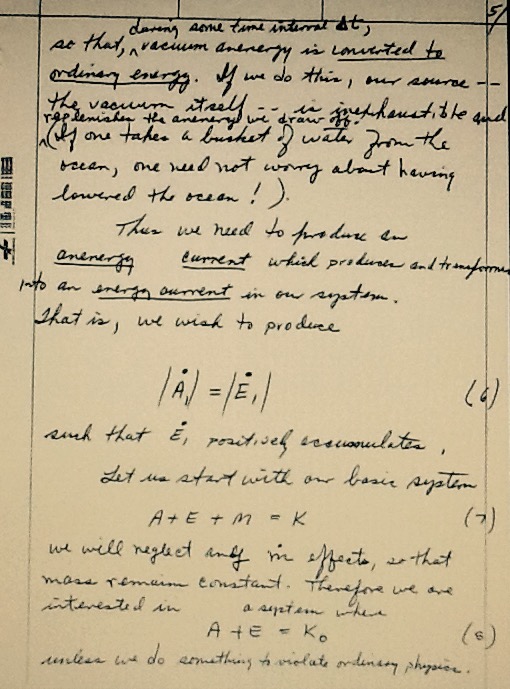 5/
during some time interval Δt,
so that, ^ vacuum anenergy is converted to
ordinary energy. If we do this, our source --
the vacuum itself -- is inexhaustible and
replenishes the anenergy we draw off.
^(If one takes a bucket of water from the
ocean, one need not worry about having
lowered the ocean!).
Thus we need to produce an
anenergy current which produces and transforms
into an energy current in our system.
That is, we wish to produce
|Ȧ₁| = |Ė₁| (6)
such that Ė₁ positively accumulates.
Let us start with our basic system
A + E + M = K (7)
we will neglect any ṁ effects, so that
mass remains constant. Therefore we are
interested in a system where
A + E = K₀ (8)
unless we do something to violate ordinary physics.